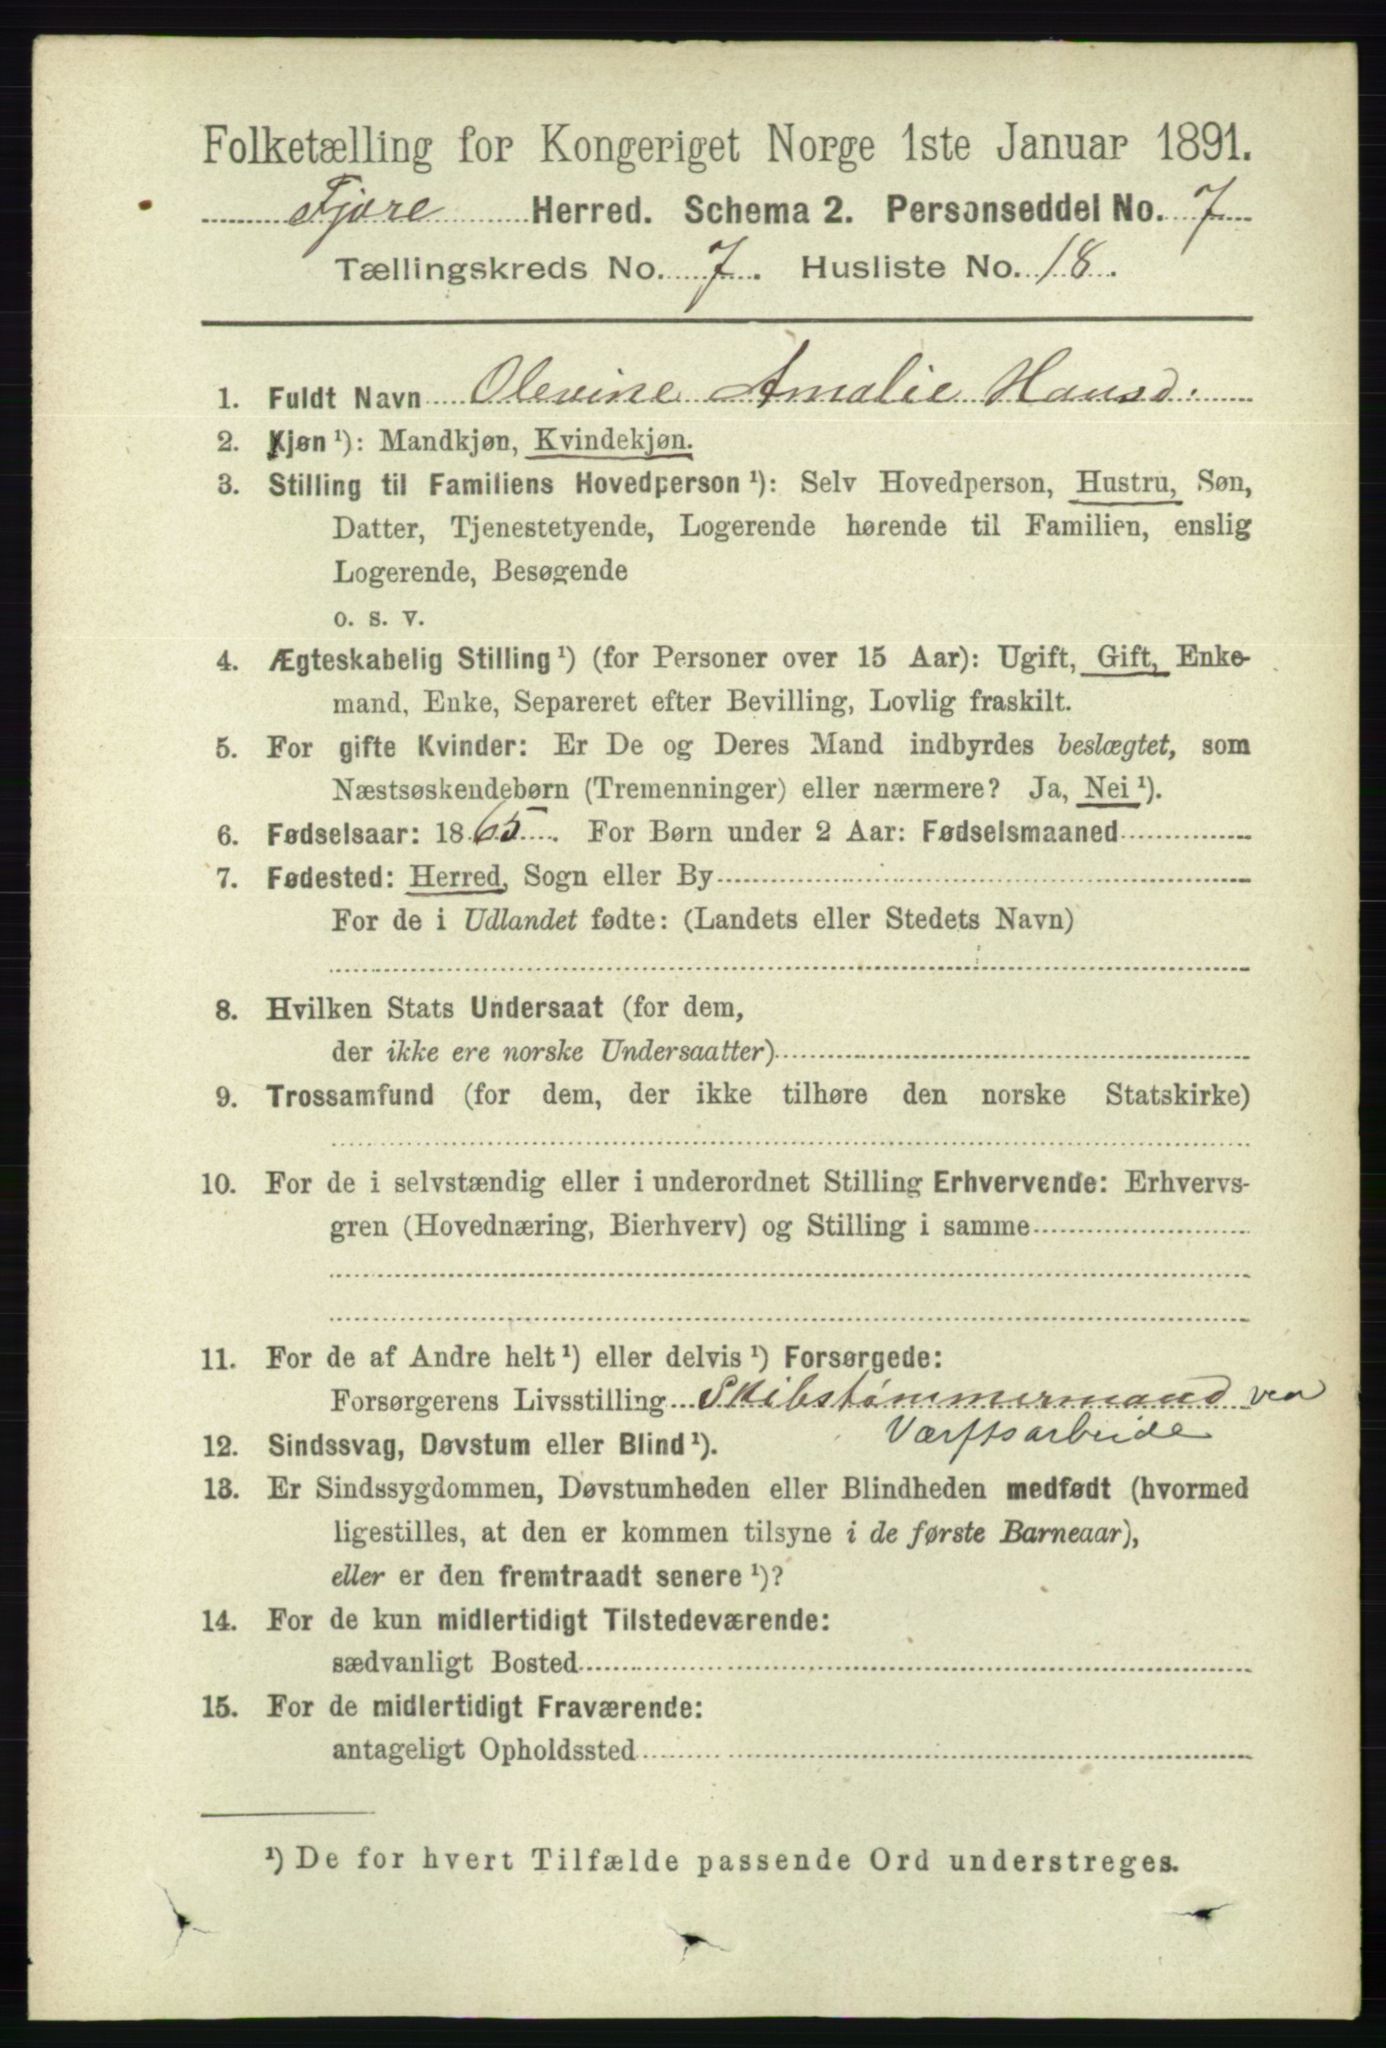 Folketælling for Kongeriget Norge 1ste Januar 1891.
Fjære Herred. Schema 2. Personseddel No. 7
Tællingskreds No. 7. Husliste No. 18.
1. Fuldt Navn Olevine Amalie Hansd.
2. Kjøn ¹): Mandkjøn, Kvindekjøn.
3. Stilling til Familiens Hovedperson ¹): Selv Hovedperson, Hustru, Søn,
Datter, Tjenestetyende, Logerende hørende til Familien, enslig
Logerende, Besøgende
o. s. v.
4. Ægteskabelig Stilling ¹) (for Personer over 15 Aar): Ugift, Gift, Enke-
mand, Enke, Separeret efter Bevilling, Lovlig fraskilt.
5. For gifte Kvinder: Er De og Deres Mand indbyrdes beslægtet, som
Næstsøskendebørn (Tremenninger) eller nærmere? Ja, Nei ¹).
6. Fødselsaar: 1865. For Børn under 2 Aar: Fødselsmaaned
7. Fødested: Herred, Sogn eller By
For de i Udlandet fødte: (Landets eller Stedets Navn)
8. Hvilken Stats Undersaat (for dem,
der ikke ere norske Undersaatter)
9. Trossamfund (for dem, der ikke tilhøre den norske Statskirke)
10. For de i selvstændig eller i underordnet Stilling Erhvervende: Erhvervs-
gren (Hovednæring, Bierhverv) og Stilling i samme
11. For de af Andre helt ¹) eller delvis ¹) Forsørgede:
Forsørgerens Livsstilling Skibstømmermand ved
Værftsarbeide
12. Sindssvag, Døvstum eller Blind ¹).
13. Er Sindssygdommen, Døvstumheden eller Blindheden medfødt (hvormed
ligestilles, at den er kommen tilsyne i de første Barneaar),
eller er den fremtraadt senere ¹)?
14. For de kun midlertidigt Tilstedeværende:
sædvanligt Bosted
15. For de midlertidigt Fraværende:
antageligt Opholdssted
¹) De for hvert Tilfælde passende Ord understreges.